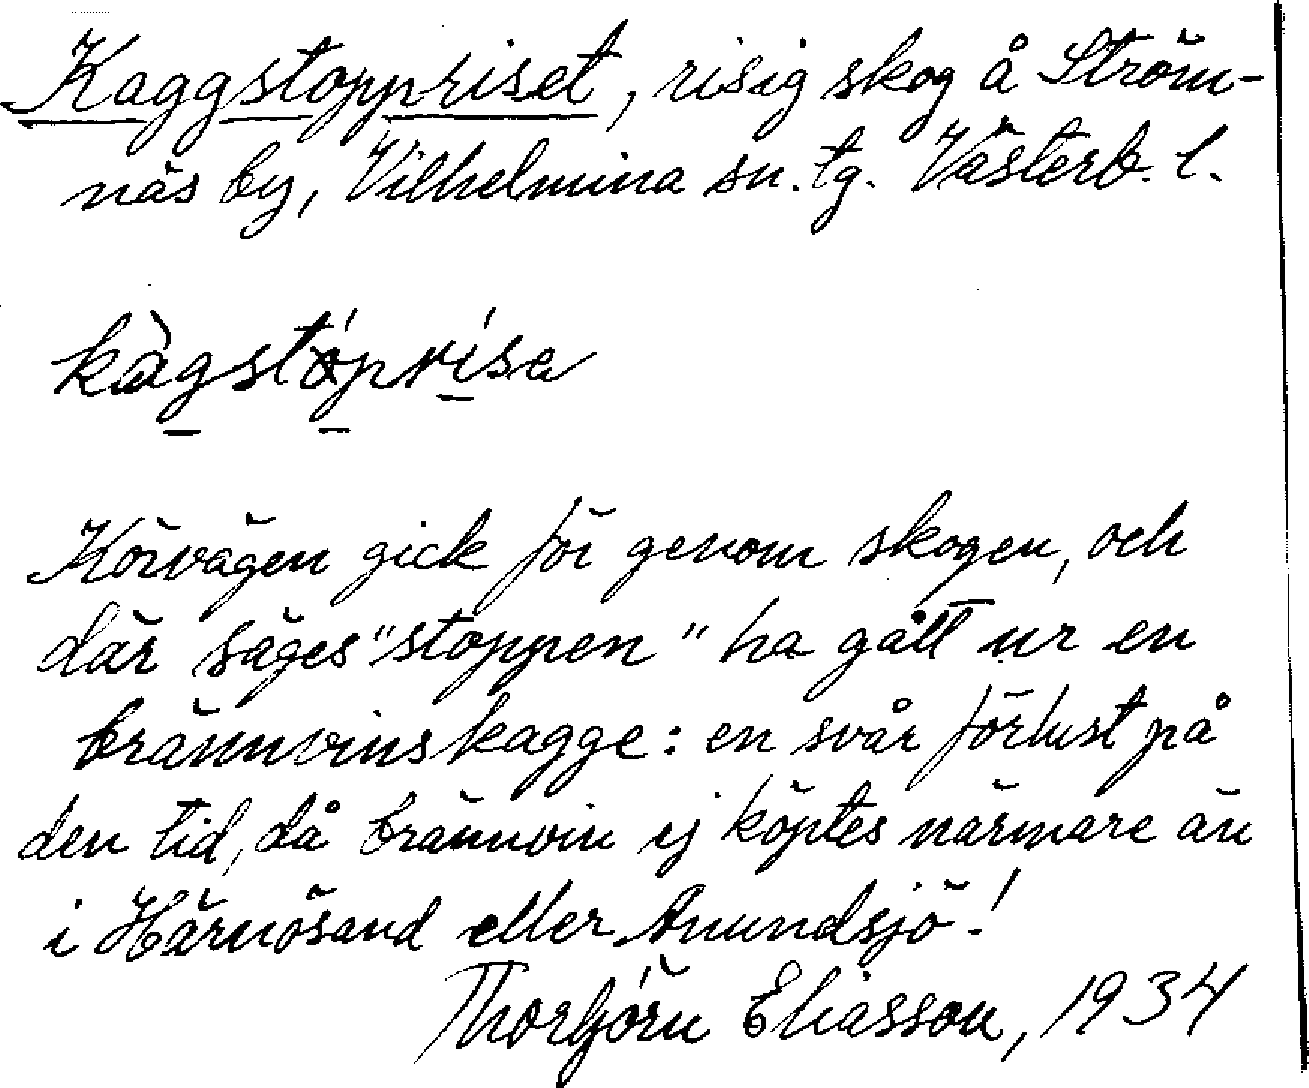 Kaggstoppriset, risig skog å Ström-
näs by, Vilhelmina sn. tg. Västerb. l.
kàgstóprísa
Körvägen gick för genom skogen, och
där säges "stoppen" ha gått ur en
brännvinskagge: en svår förlust på
den tid, då brännvin ej köptes närmare än
i Härnösand eller Anundsjö!
Thorbjörn Eliasson, 1934